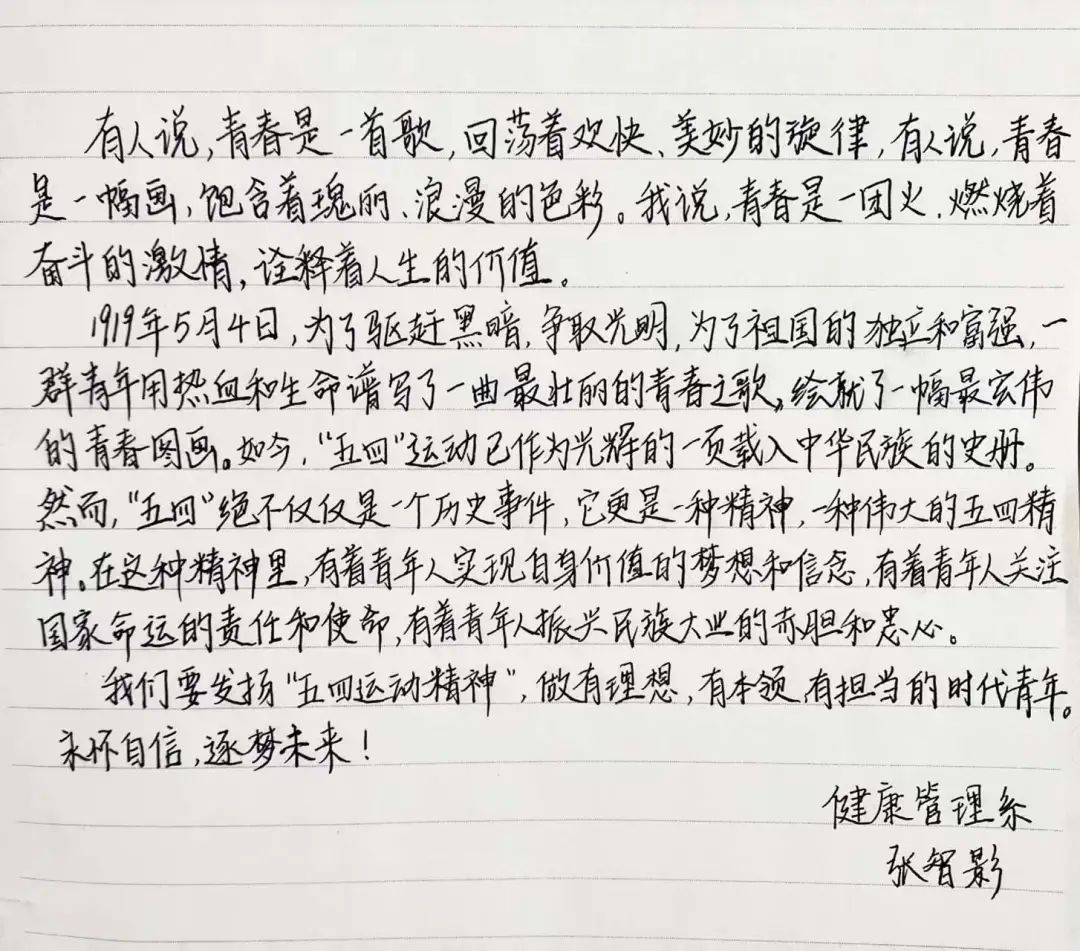 有人说,青春是一首歌,回荡着欢快、美妙的旋律,有人说,青春
是一幅画,饱含着瑰丽、浪漫的色彩。我说,青春是一团火,燃烧着
奋斗的激情,诠释着人生的价值。
1919年5月4日,为了驱赶黑暗,争取光明,为了祖国的独立和富强,一
群青年用热血和生命谱写了一曲最壮丽的青春之歌,绘就了一幅最宏伟
的青春图画。如今,“五四”运动已作为光辉的一页载入中华民族的史册。
然而,“五四”绝不仅仅是一个历史事件,它更是一种精神,一种伟大的五四精
神。在这种精神里,有着青年人实现自身价值的梦想和信念,有着青年人关注
国家命运的责任和使命,有着青年人振兴民族大业的赤胆和忠心。
我们要发扬“五四运动精神”,做有理想,有本领,有担当的时代青年。
永怀自信,逐梦未来!
健康管理系
张智影